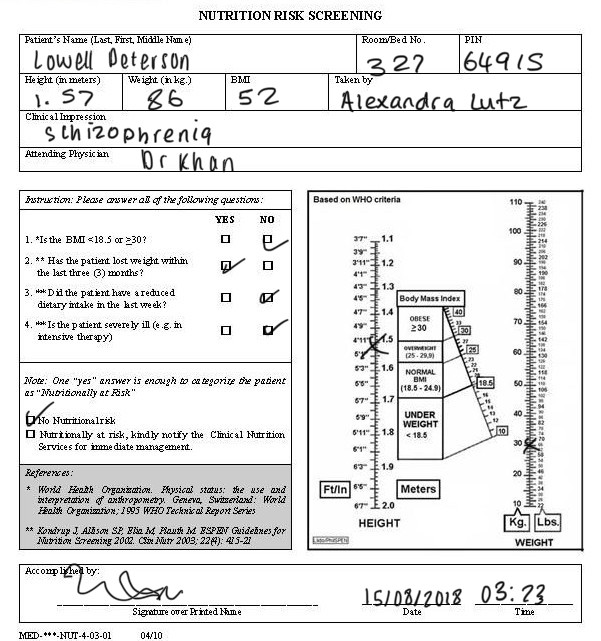 NUTRITION RISK SCREENING
Patient's Name (Last, First, Middle Name)
Room/Bed No.
PIN
Lowell Peterson
327
64915
Height (in meters)
Weight (in kg.)
BMI
Taken by
1.57
86
52
Alexandra Lutz
Clinical Impression
Schizophrenia
Attending Physician
Dr Khan
Instruction: Please answer all of the following questions:
YES NO
1. *Is the BMI <18.5 or ≥30?
2. ** Has the patient lost weight within
the last three (3) months?
3. ** Did the patient have a reduced
dietary intake in the last week?
4. ** Is the patient severely ill (e.g. in
intensive therapy)
Note: One "yes" answer is enough to categorize the patient
as "Nutritionally at Risk"
No Nutritional risk
Nutritionally at risk, kindly notify the Clinical Nutrition
Services for immediate management.
References:
* World Health Organization. Physical status: the use and
interpretation of anthropometry. Geneva, Switzerland: World
Health Organization; 1995 WHO Technical Report Series
** Kondrup J, Allison SP, Elia M, Plauth M. ESPEN Guidelines for
Nutrition Screening 2002. Clin Nutr 2003; 22(4): 415-21
Based on WHO criteria
3'7" 1.1
3'9"
3'11" 1.2
4'1"
4'3" 1.3
4'5"
4'7" 1.4
4'9"
4'11" 1.5
5'1"
5'3" 1.6
5'5"
5'7" 1.7
5'9"
5'11" 1.8
6'1"
6'3" 1.9
6'5"
6'7" 2.0
Ft/In
Meters
HEIGHT
Body Mass Index
OBESE
≥30
OVERWEIGHT
(25 - 29,9)
NORMAL
BMI
(18.5 - 24.9)
UNDER
WEIGHT
< 18.5
40
30
25
18.5
10
110
100
90
80
70
60
50
40
30
20
10
Kg. Lbs.
WEIGHT
Accomplished by:
Signature over Printed Name
15/08/2018
Date
03:23
Time
MED-***-NUT-4-03-01
04/10